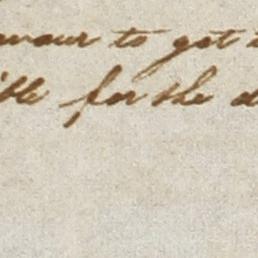 avour to get
ible for the d